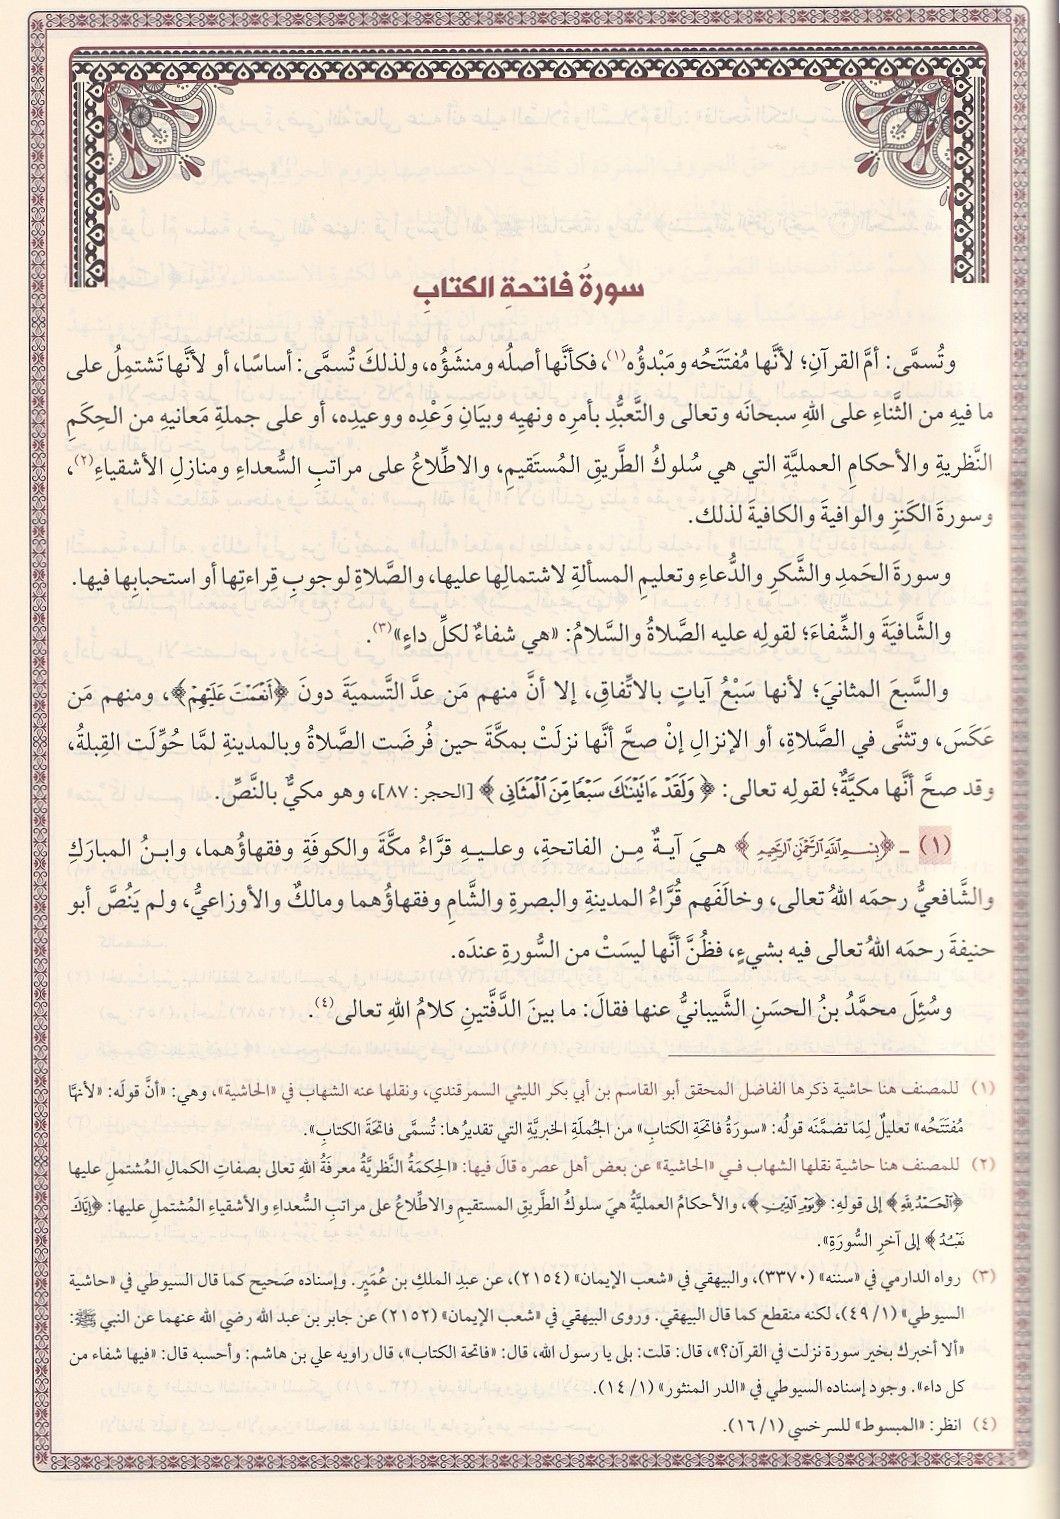 سورةُ فاتحةِ الكتابِ
وتُسمَّى: أمَّ القرآنِ؛ لأنَّها مُفتَتَحُه ومَبْدؤُه(١)، فكأنَّها أصلُه ومنشَؤُه، ولذلكَ تُسمَّى: أساسًا، أو لأنَّها تَشتمِلُ على
ما فيهِ من الثَّناءِ على اللهِ سبحانَه وتعالى والتَّعبُّدِ بأمرِه ونهيِه وبيَانِ وَعْدِه ووعيدِه، أو على جملةِ مَعانيهِ من الحِكَمِ
النَّظريةِ والأحكامِ العمليَّةِ التي هي سُلوكُ الطَّريقِ المُستَقيمِ، والاطِّلاعُ على مراتبِ السُّعداءِ ومنازلِ الأشقياءِ(٢)،
وسورةَ الكَنزِ والوافيةَ والكافيةَ لذلك.
وسورةَ الحَمدِ والشُّكرِ والدُّعاءِ وتعليمِ المسألةِ لاشتمالِها عليها، والصَّلاةِ لوجوبِ قِراءتِها أو استحبابِها فيها.
والشَّافيَةَ والشِّفاءَ؛ لقولِه عليه الصَّلاةُ والسَّلامُ: «هي شفاءٌ لكلِّ داءٍ»(٣).
والسَّبعَ المثانيَ؛ لأنها سَبْعُ آياتٍ بالاتِّفاقِ، إلا أنَّ منهم مَن عدَّ التَّسميَةَ دونَ ﴿أَنْعَمْتَ عَلَيْهِمْ﴾، ومنهم مَن
عَكَسَ، وتثنَّى في الصَّلاةِ، أو الإنزالِ إنْ صحَّ أنَّها نزلَتْ بمكَّةَ حين فُرضَت الصَّلاةُ وبالمدينةِ لمَّا حُوِّلَت القِبلةُ،
وقد صحَّ أنَّها مكيَّةٌ؛ لقولِه تعالى: ﴿وَلَقَدْ ءَاتَيْنَٰكَ سَبْعًا مِّنَ ٱلْمَثَانِى﴾ [الحجر: ٨٧]، وهو مكيٌّ بالنَّصِّ.
(١) ـ ﴿بِسْمِ ٱللَّهِ ٱلرَّحْمَٰنِ ٱلرَّحِيمِ﴾ هيَ آيةٌ مِن الفاتحةِ، وعليهِ قرَّاءُ مكَّةَ والكوفَةِ وفقهاؤُهما، وابنُ المبارَكِ
والشَّافعيُّ رحمَه اللهُ تعالى، وخالَفَهم قُرَّاءُ المدينةِ والبصرةِ والشَّامِ وفقهاؤُهما ومالكٌ والأوزاعيُّ، ولم يَنُصَّ أبو
حنيفةَ رحمَه اللهُ تعالى فيه بشيءٍ، فظُنَّ أنَّها ليسَتْ من السُّورةِ عندَه.
وسُئِلَ محمَّدُ بنُ الحسَنِ الشَّيبانيُّ عنها فقالَ: ما بينَ الدَّفَّتينِ كلامُ اللهِ تعالى(٤).
(١) للمصنف هنا حاشية ذكرها الفاضل المحقق أبو القاسم بن أبي بكر الليثي السمرقندي، ونقلها عنه الشهاب في «الحاشية»، وهي: «أنَّ قولَه: «لأنهَّا
مُفتَتَحُه» تعليلٌ لِمَا تضمَّنَه قولُه: «سورَةُ فاتحَةِ الكتابِ» من الجُملَةِ الخبريَّةِ التي تقديرُها: تُسمَّى فاتحَةَ الكتابِ».
(٢) للمصنف هنا حاشية نقلها الشهاب فـي «الحاشية» عن بعض أهل عصره قالَ فيها: «الحِكمَةُ النَّظريَّةُ معرفَةُ اللهِ تعالى بصفاتِ الكمالِ المُشتملِ عليها
﴿ٱلْحَمْدُ لِلَّهِ﴾ إلى قولِهِ: ﴿يَوْمِ ٱلدِّينِ﴾، والأحكامُ العمليَّةُ هيَ سلوكُ الطَّريقِ المستقيمِ والاطلاعُ على مراتبِ السُّعداءِ والأشقياءِ المُشتملِ عليها: ﴿إِيَّاكَ
نَعْبُدُ﴾ إلى آخرِ السُّورَةِ».
(٣) رواه الدارمي في «سننه» (٣٣٧٠)، والبيهقي في «شعب الإيمان» (٢١٥٤)، عن عبدِ الملكِ بن عُمَيرٍ. وإسناده صَحيح كما قال السيوطي في «حاشية
السيوطي» (١/ ٤٩)، لكنه منقطع كما قال البيهقي. وروى البيهقي في «شعب الإيمان» (٢١٥٢) عن جابر بن عبد الله رضي الله عنهما عن النبي ﷺ:
«ألا أخبرك بخير سورة نزلت في القرآن؟»، قال: قلت: بلى يا رسول الله، قال: «فاتحة الكتاب»، قال راويه علي بن هاشم: وأحسبه قال: «فيها شفاء من
كل داء». وجود إسناده السيوطي في «الدر المنثور» (١/ ١٤).
(٤) انظر: «المبسوط» للسرخسي (١/ ١٦).